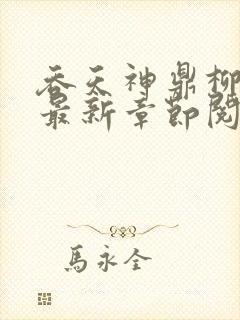 吞天神鼎柳
最新章節閱
馬永全